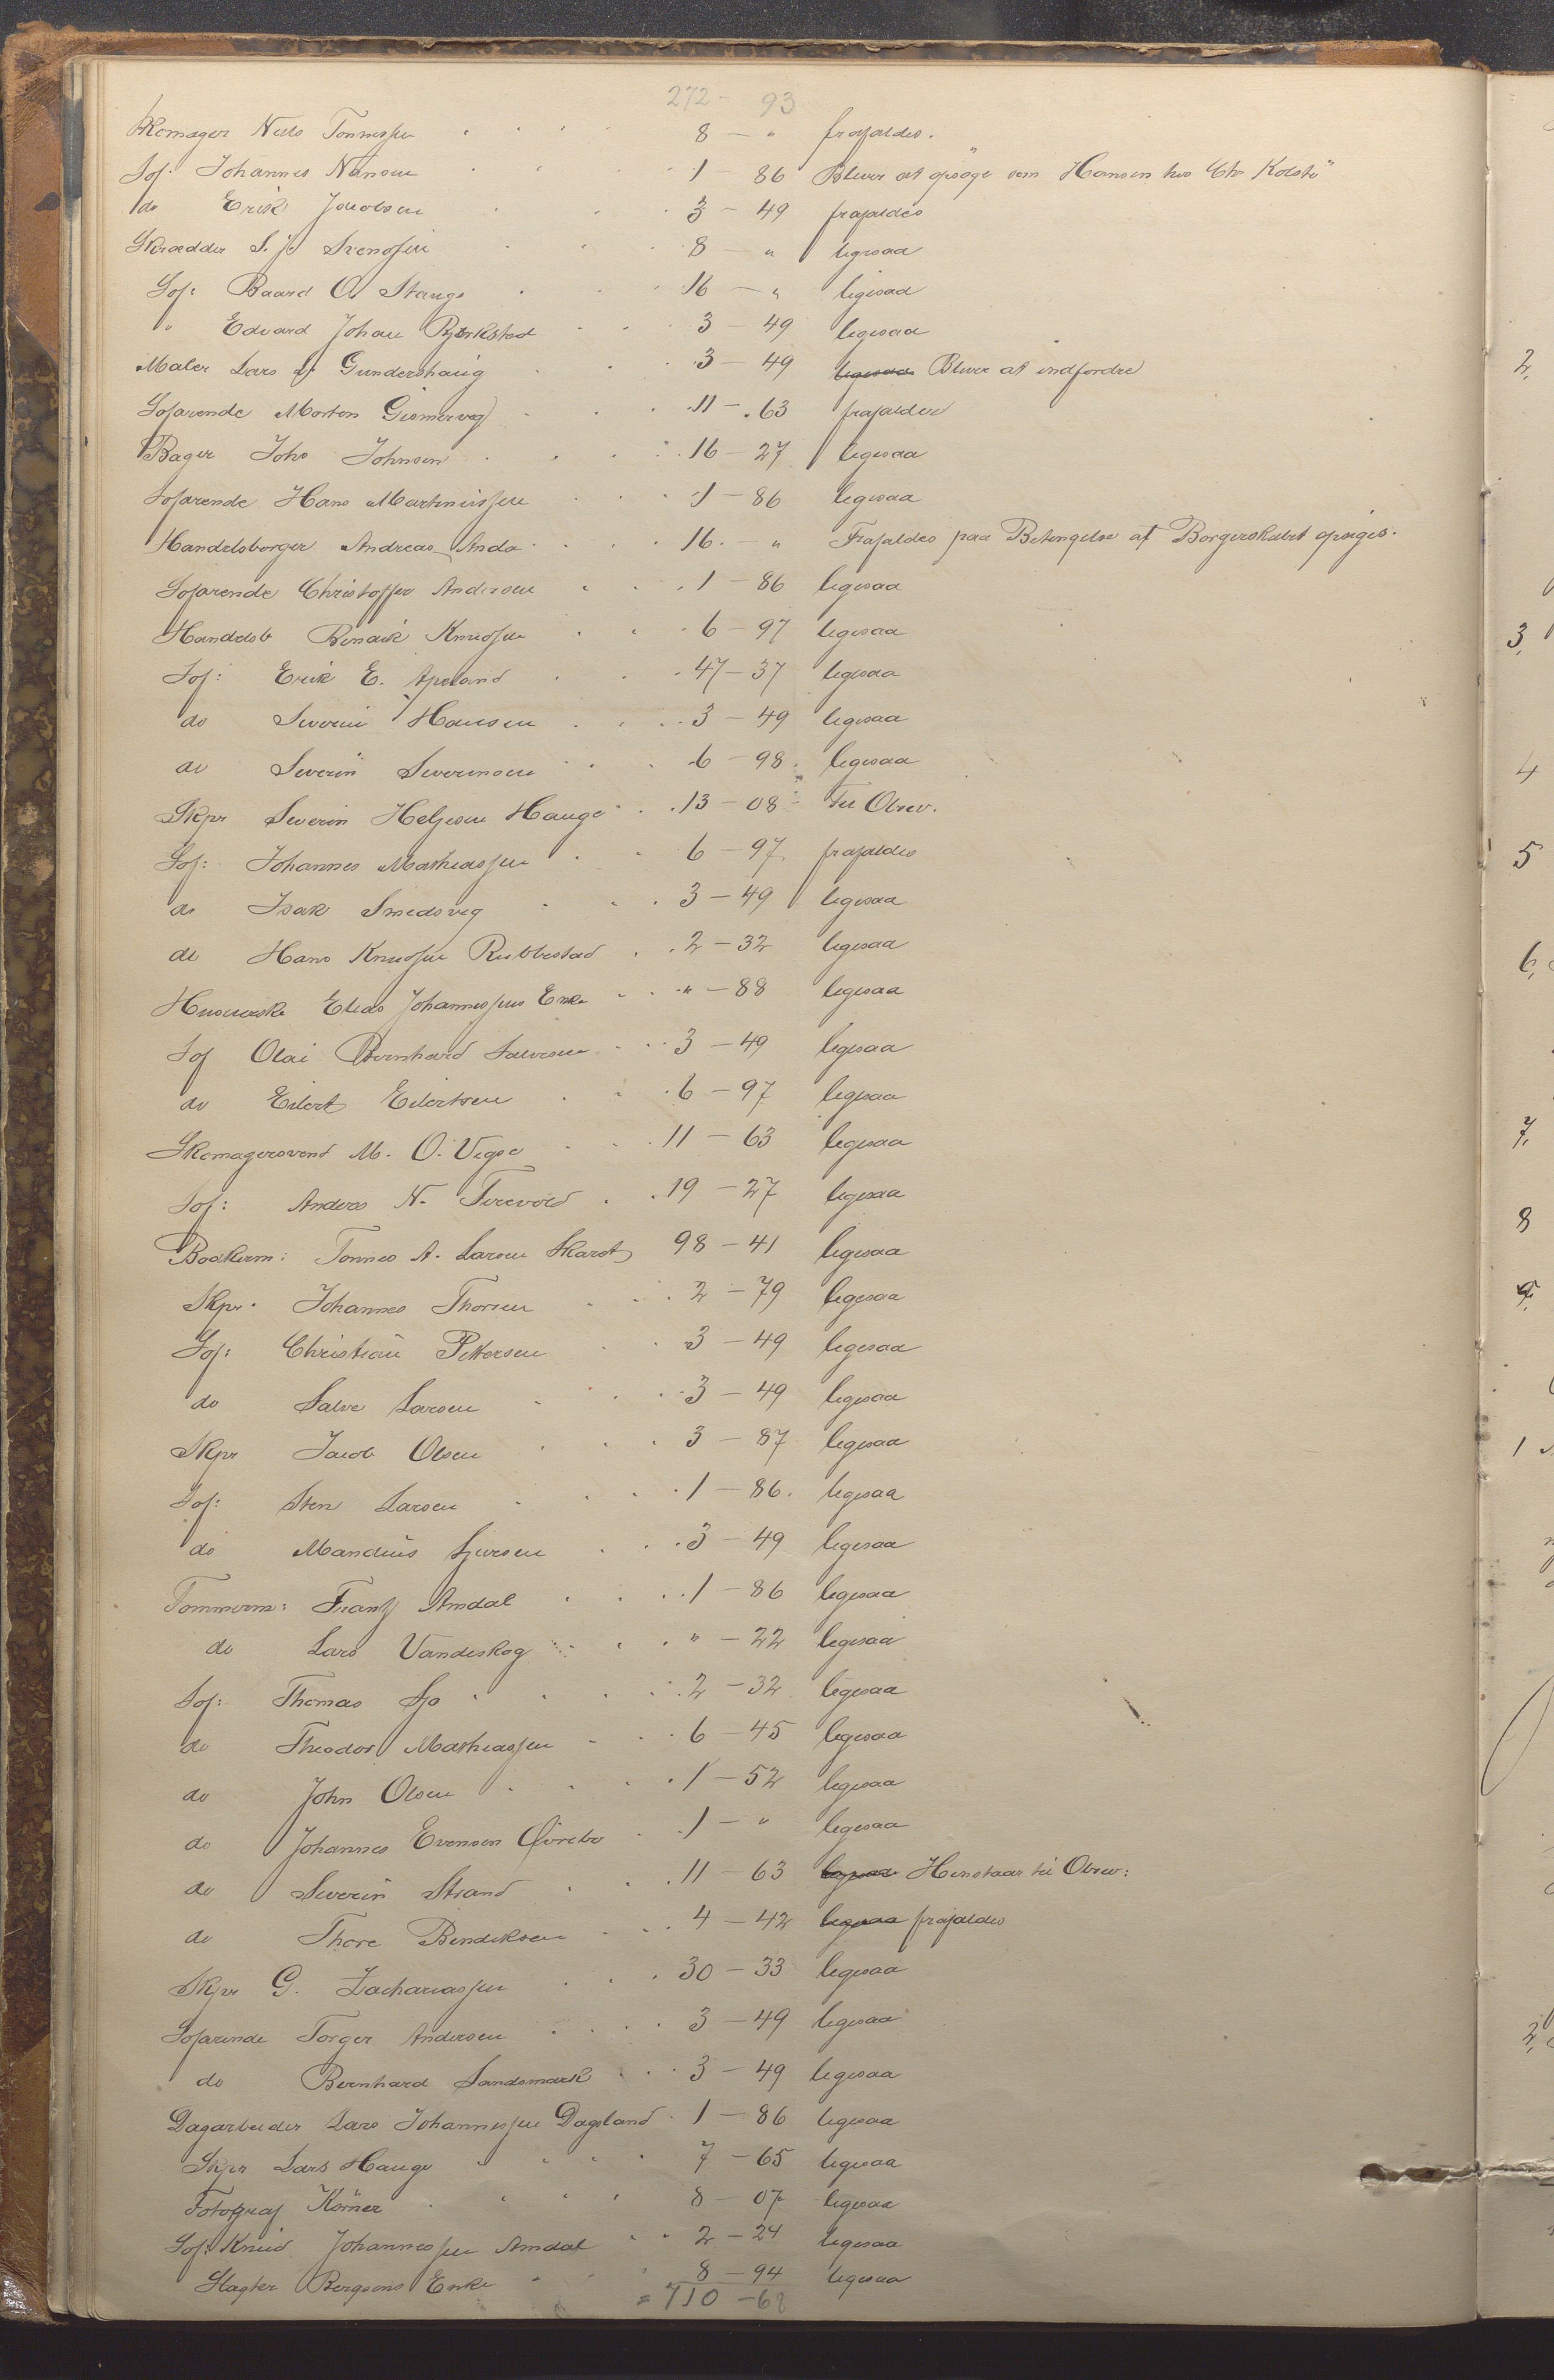 272 - 93
Skomager Niels Tönnesen 8 - " frafaldes.
Sof. Johannes Nansen 1 - 86 Bliver at opsöge som Hansen hos Chr Kolstö"
do Erik Jacobsen 3 - 49 frafaldes
Skrædder S. J. Svensen 8 - " ligesaa
Sof: Baard O. Stange 16 - " ligesaa
" Edvard Johan Bjerksted 3 - 49 ligesaa
Maler Lars Gundershaug 3 - 49 ligesaa Bliver at indfordre
Sofarende Morten Gismervig 11 - 63 frafaldes
Bager Johs Johnsen 16 - 27 ligesaa
Sofarende Hans Martinussen 1 - 86 ligesaa
Handelsborger Andreas Anda 16. - " Frafaldes paa Betingelse af Borgerskabet opsiges.
Sofarende Christoffer Andersen 1 - 86 ligesaa
Handelsb Bendik Knudsen 6 - 97 ligesaa
Sof: Erik E. Apeland 47 - 37 ligesaa
do Severin Hansen 3 - 49 ligesaa
do Severin Severinsen 6 - 98 ligesaa
Skpr Severin Helgesen Hauge 13 - 08 Til Obsrv.
Sof: Johannes Mathiassen 6 - 97 frafaldes
do Isak Smedsvig 3 - 49 ligesaa
do Hans Knudsen Rubbestad 2 - 32 ligesaa
Huusmandske Elias Johannessens Enke " - 88 ligesaa
Sof Olai Bernhard Salvesen 3 - 49 ligesaa
do Eilert Eilertsen 6 - 97 ligesaa
Skomagersvend M. O. Vigse 11 - 63 ligesaa
Sof: Anders N. Tirevold 19 - 27 ligesaa
Bødkerm: Tonnes A. Larsen Skaret 98 - 41 ligesaa
Skpr. Johannes Thorsen 2 - 79 ligesaa
Sof: Christian Pettersen 3 - 49 ligesaa
do Salve Larsen 3 - 49 ligesaa
Skpr Jacob Olsen 3 - 87 ligesaa
Sof: Sten Larsen 1 - 86. ligesaa
do Mandius Sjursen 3 - 49 ligesaa
Tommerm: Frantz Amdal 1 - 86 ligesaa
do Lars Vandeskog " - 22 ligesaa
Sof: Thomas Sjo 2 - 32 ligesaa
do Theodor Mathiassen 6 - 45 ligesaa
do John Olsen 1 - 52 ligesaa
do Johannes Evensen Øvrebo 1 - " ligesaa
do Severin Strand 11 - 63 ligesaa Henstaar til Obsrv:
do Thore Bendiksen 4 - 42 ligesaa frafaldes
Skpr G. Zachariassen 30 - 33 ligesaa
Sofarende Torger Andersen 3 - 49 ligesaa
do Bernhard Sandsmark 3 - 49 ligesaa
Dagarbeider Lars Johannessen Dagsland 1 - 86 ligesaa
Skpr Lars Hauge 7 - 65 ligesaa
Fotograf Körner 8 - 07 ligesaa
Sof: Knud Johannessen Amdal 2 - 24 ligesaa
Slagter Bergsens Enke 8 - 94 ligesaa
= 710 - 68
2,
3,
4
5
6,
7,
8
9,
1
2,